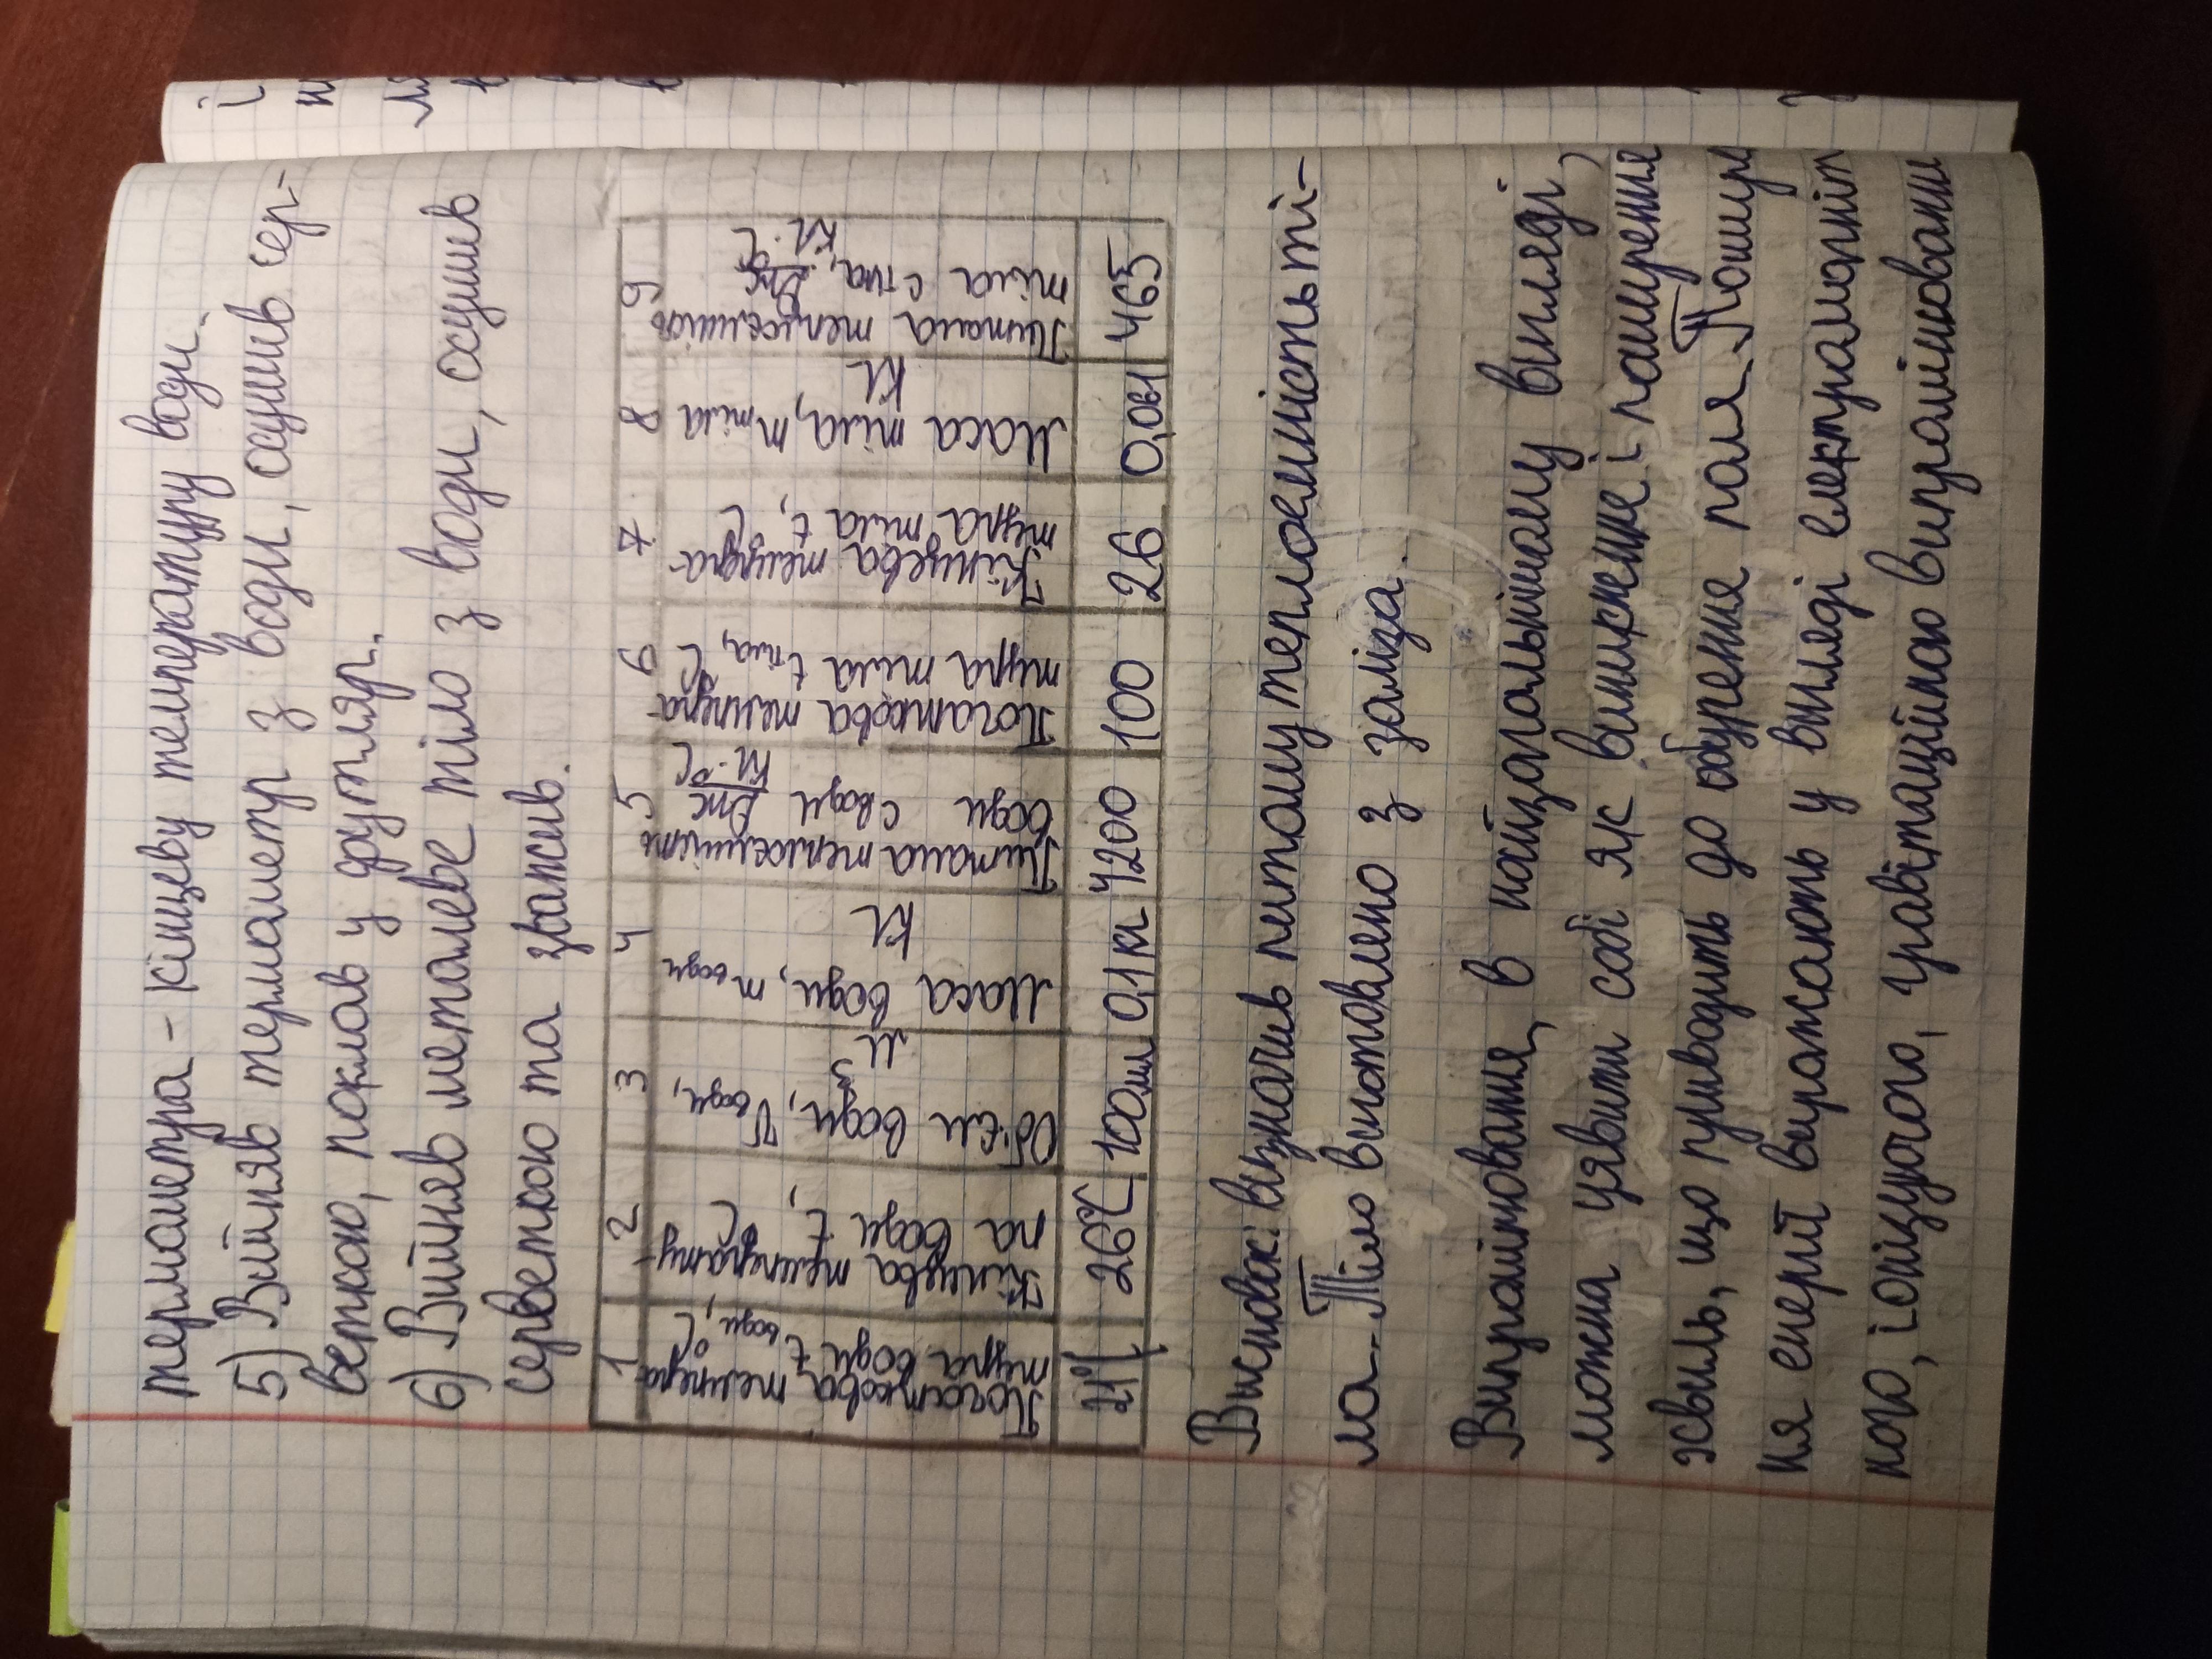 термометра - кінцеву температуру води.
5) Вийняв термометр з води, осушив сер-
веткою, поклав у футляр.
6) Вийняв металеве тіло з води, осушив
серветкою та зважив.
1 2 3 4 5 6 7 8 9
Початкова темпера-тура води tводи, °C
Кінцева температу-ра води t, °C
Об'єм води, Vводи,
Маса води, mводи кг
Питома теплоємність води cводи Дж кг·°C
Початкова темпера-тура тіла tтіла, °C
Кінцева темпера-тура тіла t, °C
Маса тіла, mтіла кг
Питома теплоємність тіла cтіла, Дж кг·°C
26°C 100мл 0,1кг 4200 100 26 465
Висновок: визначив питому теплоємність ті-
ла. Тіло виготовлено з заліза.
Випромінювання, в найзагальнішому вигляді,
можна уявити собі як виникнене і поширення
хвиль, що приводить до збурення поля. Пошир
ня енергії виражають у вигляді електромагніт
ного, іонізуючого, гравітаційного випромінювань